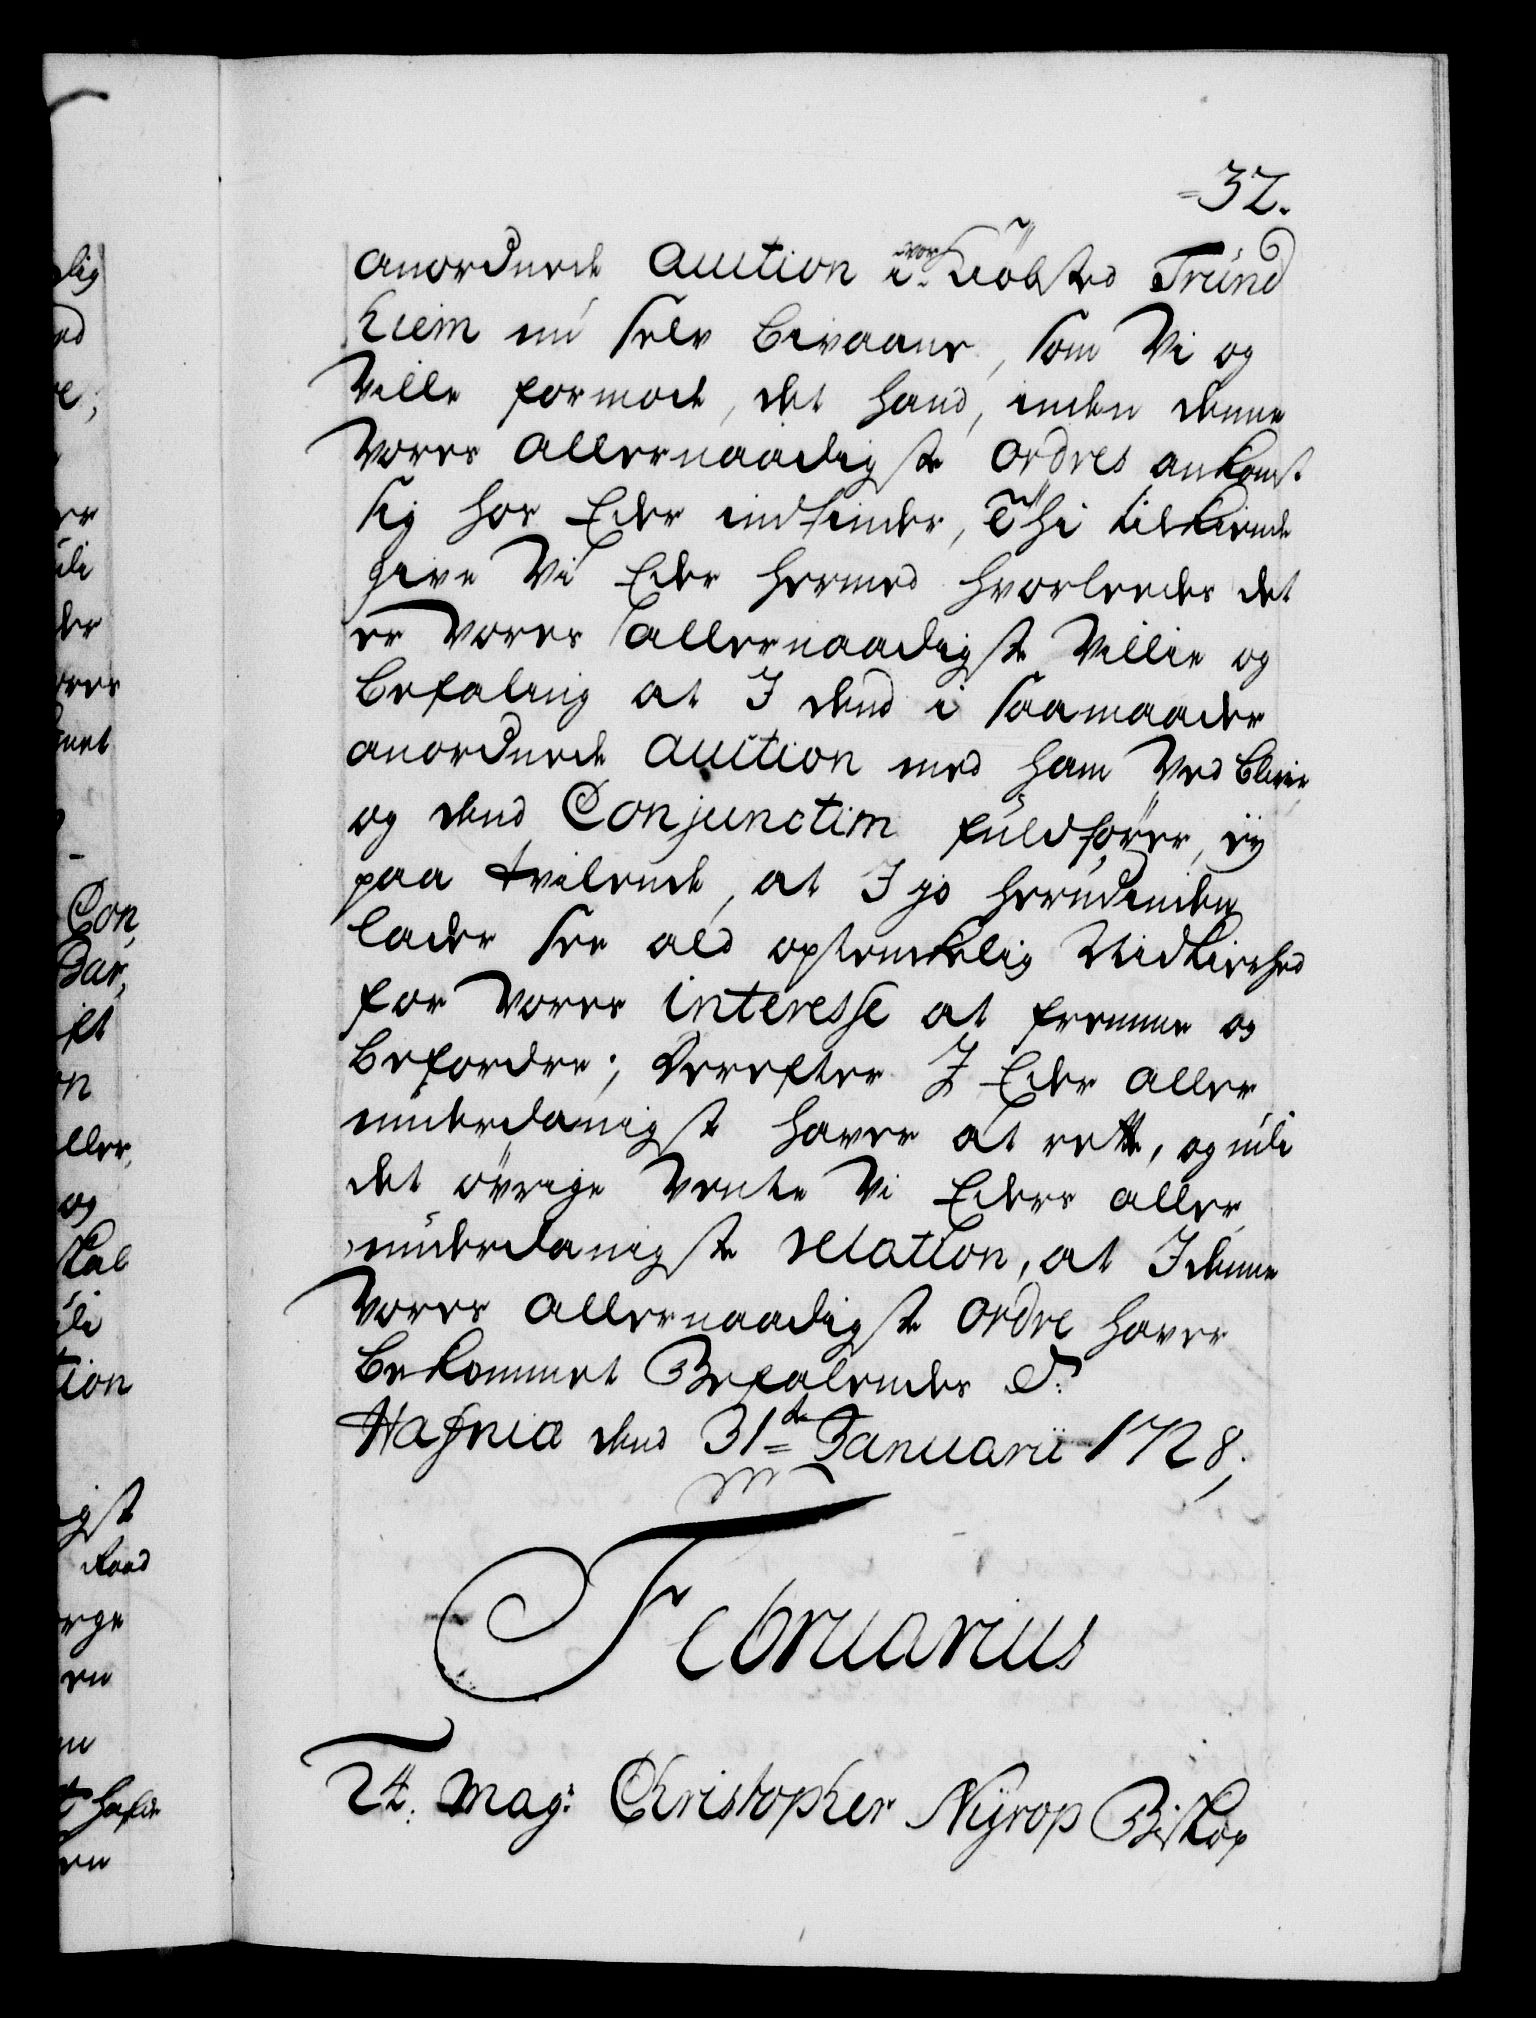 32.
anordnede Auction i vor Kiöbsted Trund
hiem nu selv bivaaner, som Vi og
Ville formode, det hand, inden denne
Vores allernaadigste Ordres ankomst
sig hos Eder indfinder, Thi tilkiende
give Vi Eder hermed hvorledes det
er Vores allernaadigste Villie og
befaling at I dend i saamaader
anordnede Auction med ham Ved bliver
og dend Conjunctim fuldförer, ey
paa tvilende, at I jo herudinden
lader see ald optenckelig Nidkierhed
for Vores interesse at fremme og
befordre; Derefter I Eder aller
underdanigst haver at rette, og udi
det övrige Vente Vi Eders aller
underdanigste relation, at I denne
Vores allernaadigste Ordre haver
bekommet Befalendes &:
Hafniæ dend 31de Januarii 1728,
Februarius
24. Mag: Christopher Nÿrop Biskop
lig
Con,
ller,
og
skal
tion
igst